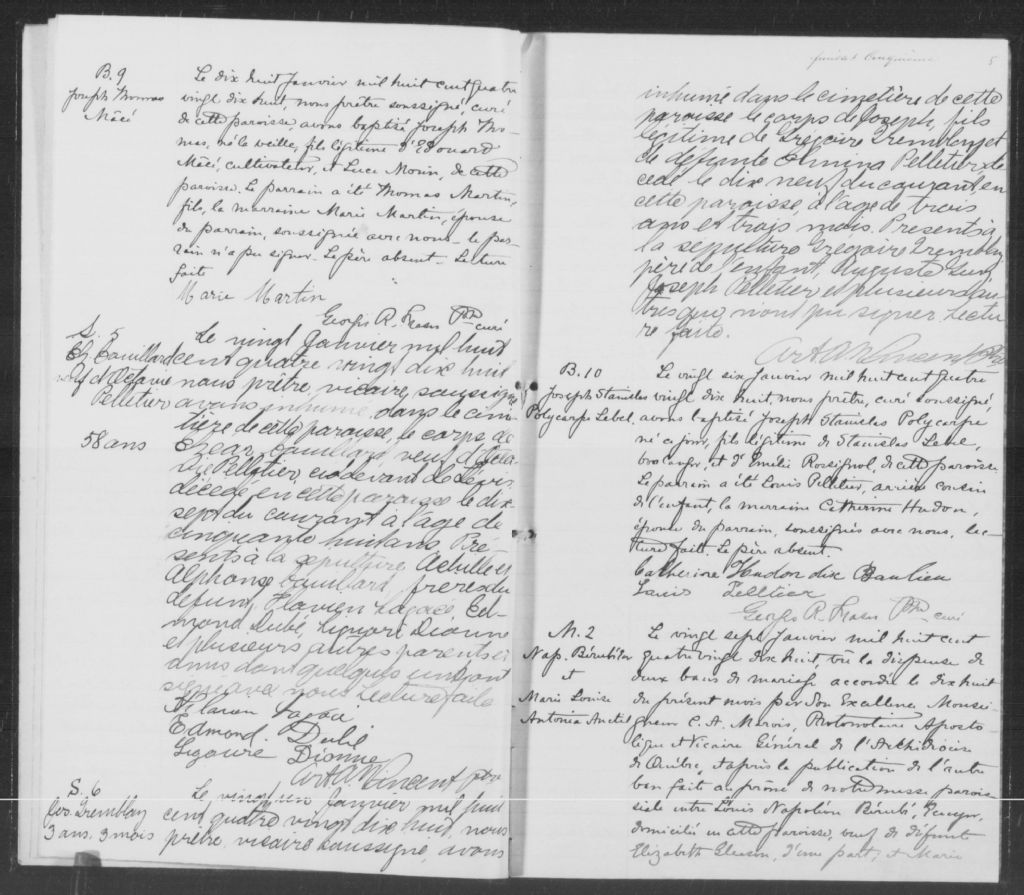 B.9
Joseph Thomas
Macé
Le dix huit Janvier mil huit cent quatre
vingt dix huit, nous prêtre soussigné, curé
de cette paroisse, avons baptisé Joseph Tho-
mas, né la veille, fils légitime d'Edouard
Macé, cultivateur, et Luce Morin, de cette
paroisse. Le parrain a été Thomas Martin,
fils, la marraine Marie Martin, épouse
du parrain, soussignée avec nous. le par-
rain n'a pu signer. Le père absent. Lecture
faite
Marie Martin
Georges R. Fraser Ptre curé
S. 5
Ez. Couillard
vf d'Octavie
Pelletier
58 ans
Le vingt Janvier mil huit
cent quatre vingt dix huit
nous prêtre, vicaire, soussigné
avons inhumé dans le cime-
tière de cette paroisse, le corps de
Ezear Couillard, veuf d'Octa-
vie Pelletier, ci-devant de
décédé en cette paroisse le dix
sept du courant à l'âge de
cinquante huit ans. Pré-
sents à la sépulture Achille et
Alphonse Couillard, frères du
défunt, Flavien Lagacé, Ed-
mond Dubé, Liguori Dionne
et plusieurs autres parents et
amis dont quelques uns ont
signé avec nous Lecture faite
Flavien Lagacé
Edmond Dubé
Dionne
Art. A. Vincent ptre
S. 6
Jos. Tremblay
3 ans. 3 mois
Le vingt un Janvier mil huit
cent quatre vingt dix huit, nous
prêtre, vicaire soussigné, avons
feuillet Cinquième 5
inhumé dans le cimetière de cette
paroisse le corps de Joseph, fils
légitime de Grégoire Tremblay et
de défunte Pelletier, dé-
cédé le dix neuf du courant en
cette paroisse, à l'age de trois
ans et trois mois. Présents à
la sépulture Grégoire Tremblay
père de l'enfant, Auguste
Joseph Pelletier et plusieurs au-
tres qui n'ont pu signer. Lectu-
re faite.
Art. A. Vincent Ptre
B. 10
Joseph Stanislas
Polycarpe Lebel
Le vingt six Janvier mil huit cent quatre
vingt dix huit, nous prêtre, curé soussigné,
avons baptisé Joseph Stanislas Polycarpe
né ce jour, fils légitime de Stanislas Lebel,
boulanger, et d'Emélie Rossignol, de cette paroisse.
Le parrain a été Louis Pelletier, arrière cousin
de l'enfant, la marraine Catherine Hudon,
épouse du parrain, soussignés avec nous. lec-
ture faite. Le père absent.
Catherine Hudon dix Baulieu
Louis Pelletier
Georges R. Fraser Ptre curé
M. 2
Nap. Bérubé
et
Marie Louise
Antonia Anctil
Le vingt sept Janvier mil huit cent
quatre vingt dix huit, vû la dispense de
deux bans de mariage accordée le dix huit
du présent mois par Son Excellence, Monsei-
gneur C. A. Marois, Protonotaire Aposto-
lique et Vicaire Général de l'Archidiocèse
de Québec, et après la publication de l'autre
ban fait au prône de notre messe parois-
siale entre Louis Napoléon Bérubé,
domicilié en cette paroisse, veuf de défunte
Elizabeth Gleeson, d'une part; et Marie